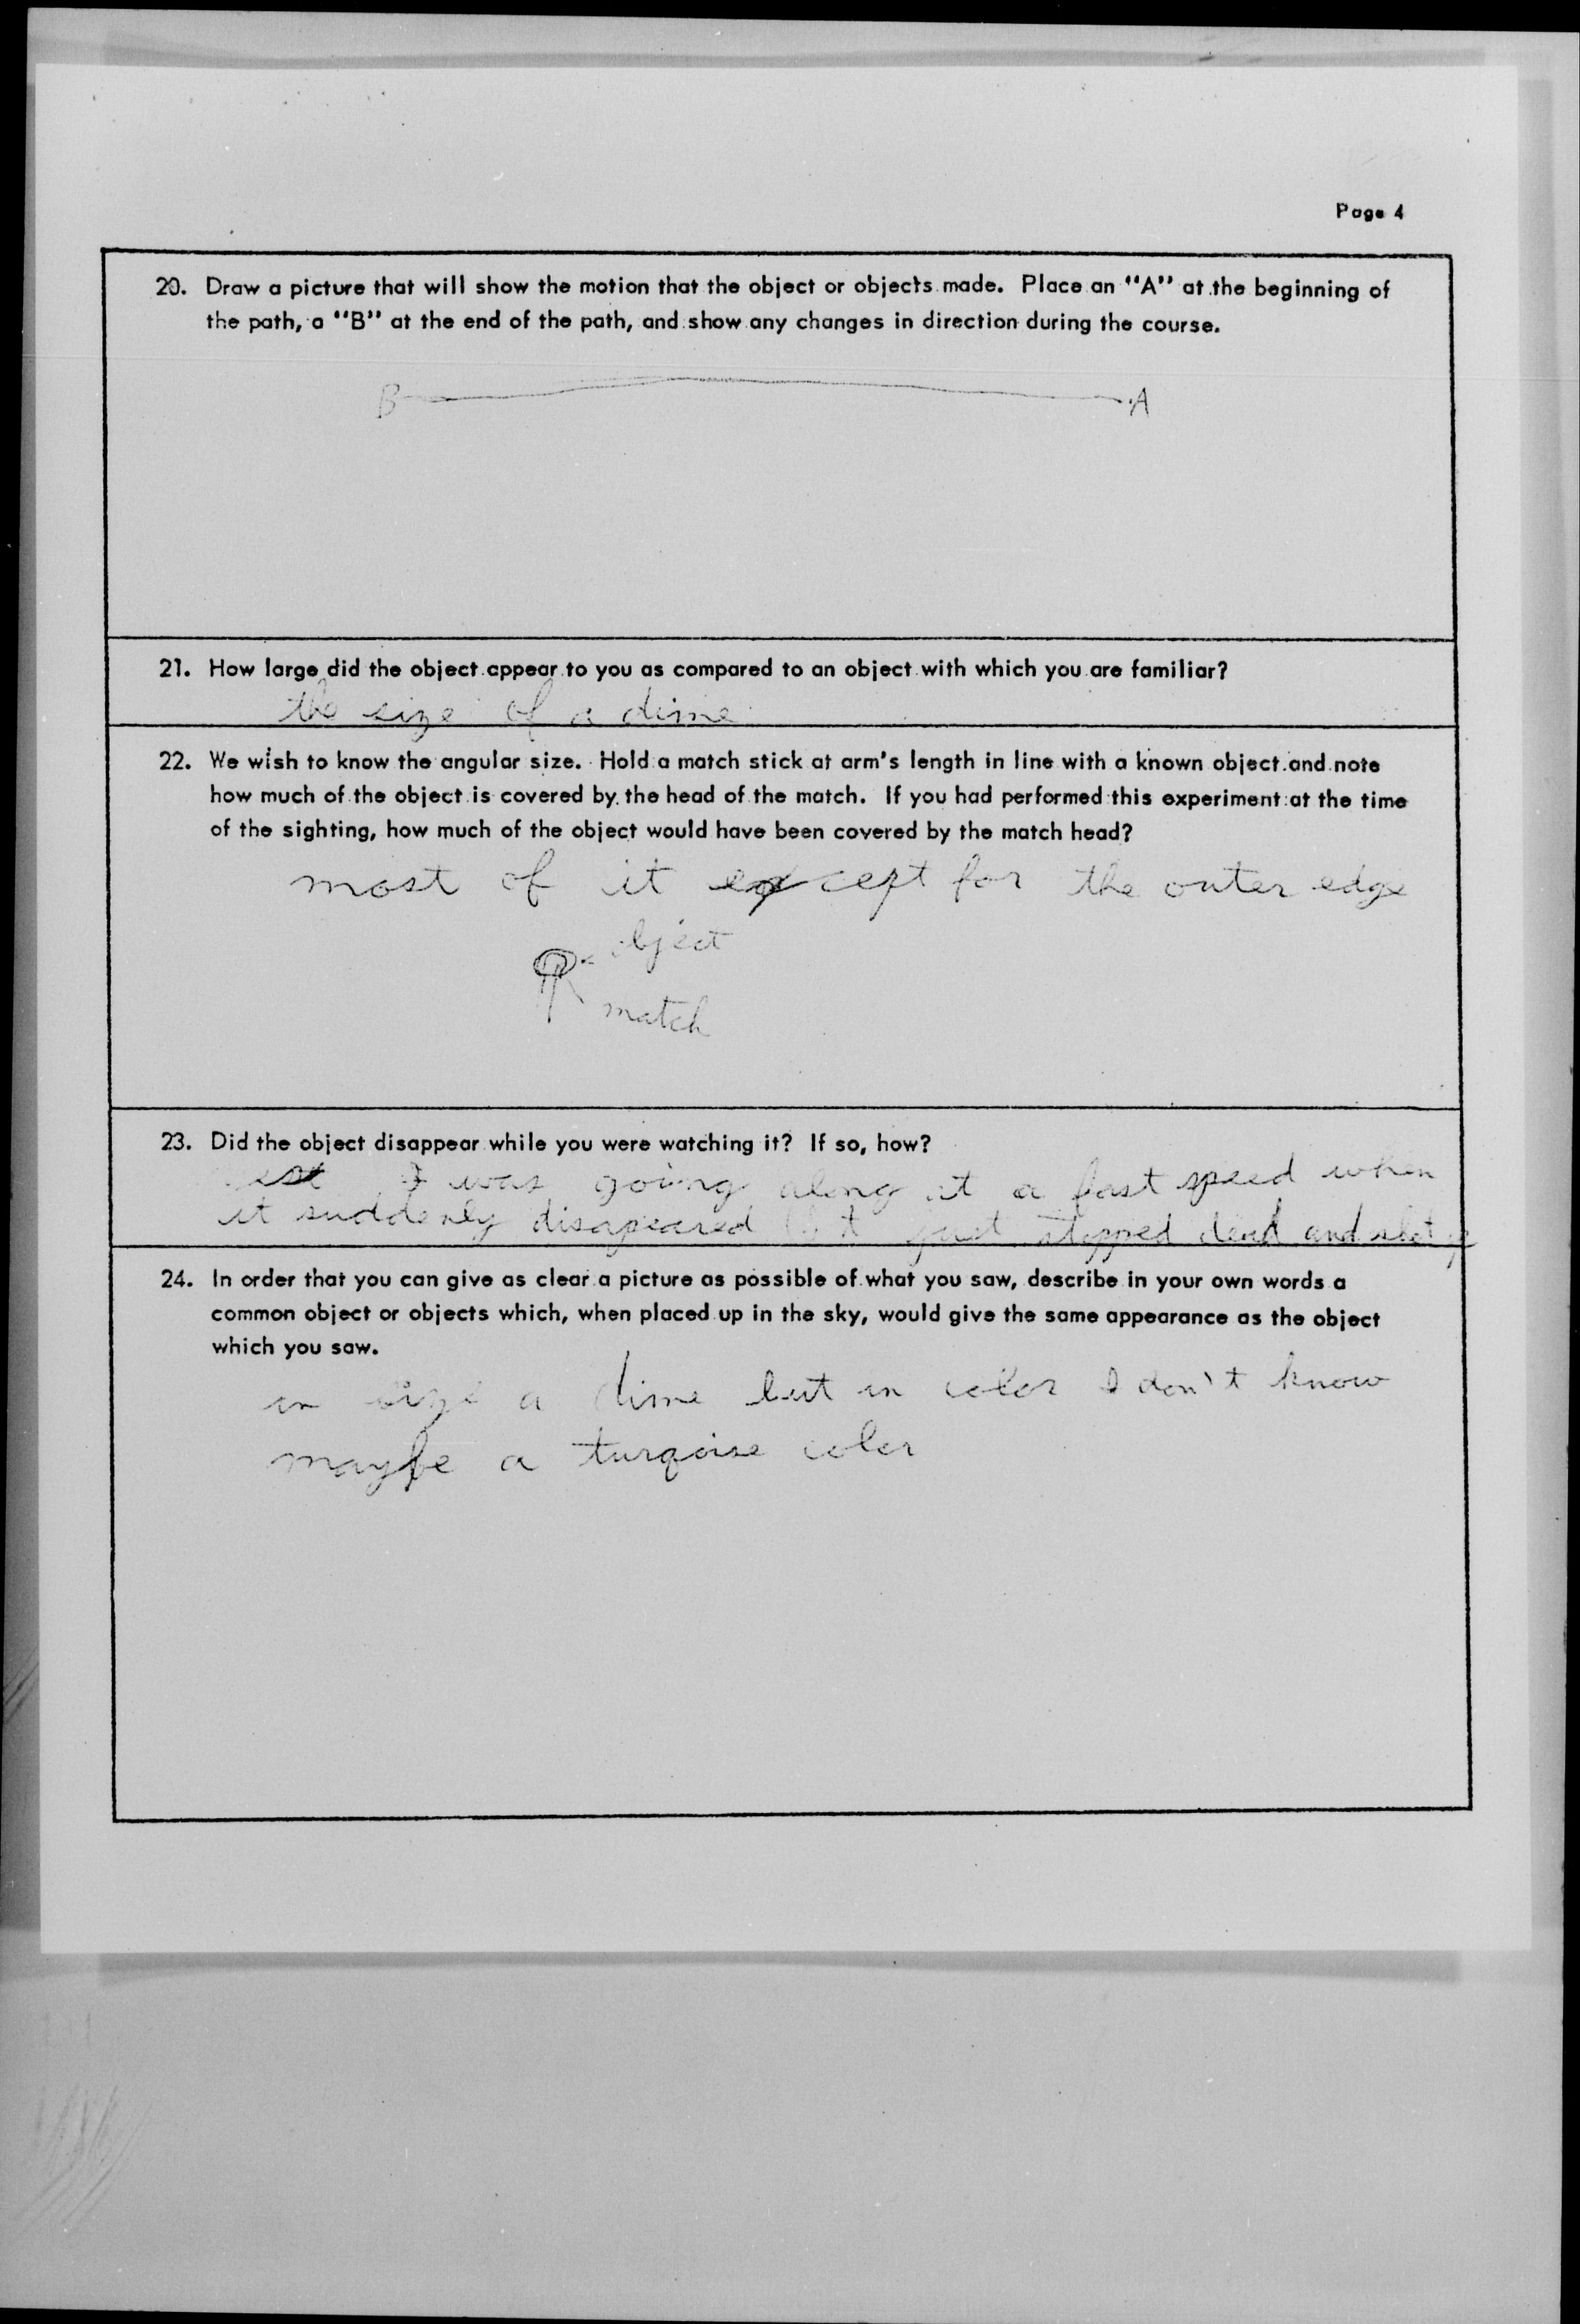 Page 4
20. Draw a picture that will show the motion that the object or objects made. Place an "A" at the beginning of
the path, a "B" at the end of the path, and show any changes in direction during the course.
B A
21. How large did the object appear to you as compared to an object with which you are familiar?
the size of a dime
22. We wish to know the angular size. Hold a match stick at arm's length in line with a known object and note
how much of the object is covered by the head of the match. If you had performed this experiment at the time
of the sighting, how much of the object would have been covered by the match head?
most of it except for the outer edge
object
match
23. Did the object disappear while you were watching it? If so, how?
was going along at a fast speed when
it suddenly disapeared just stopped dead and shot
24. In order that you can give as clear a picture as possible of what you saw, describe in your own words a
common object or objects which, when placed up in the sky, would give the same appearance as the object
which you saw.
in size a dime but in color I don't know
maybe a turqoise color